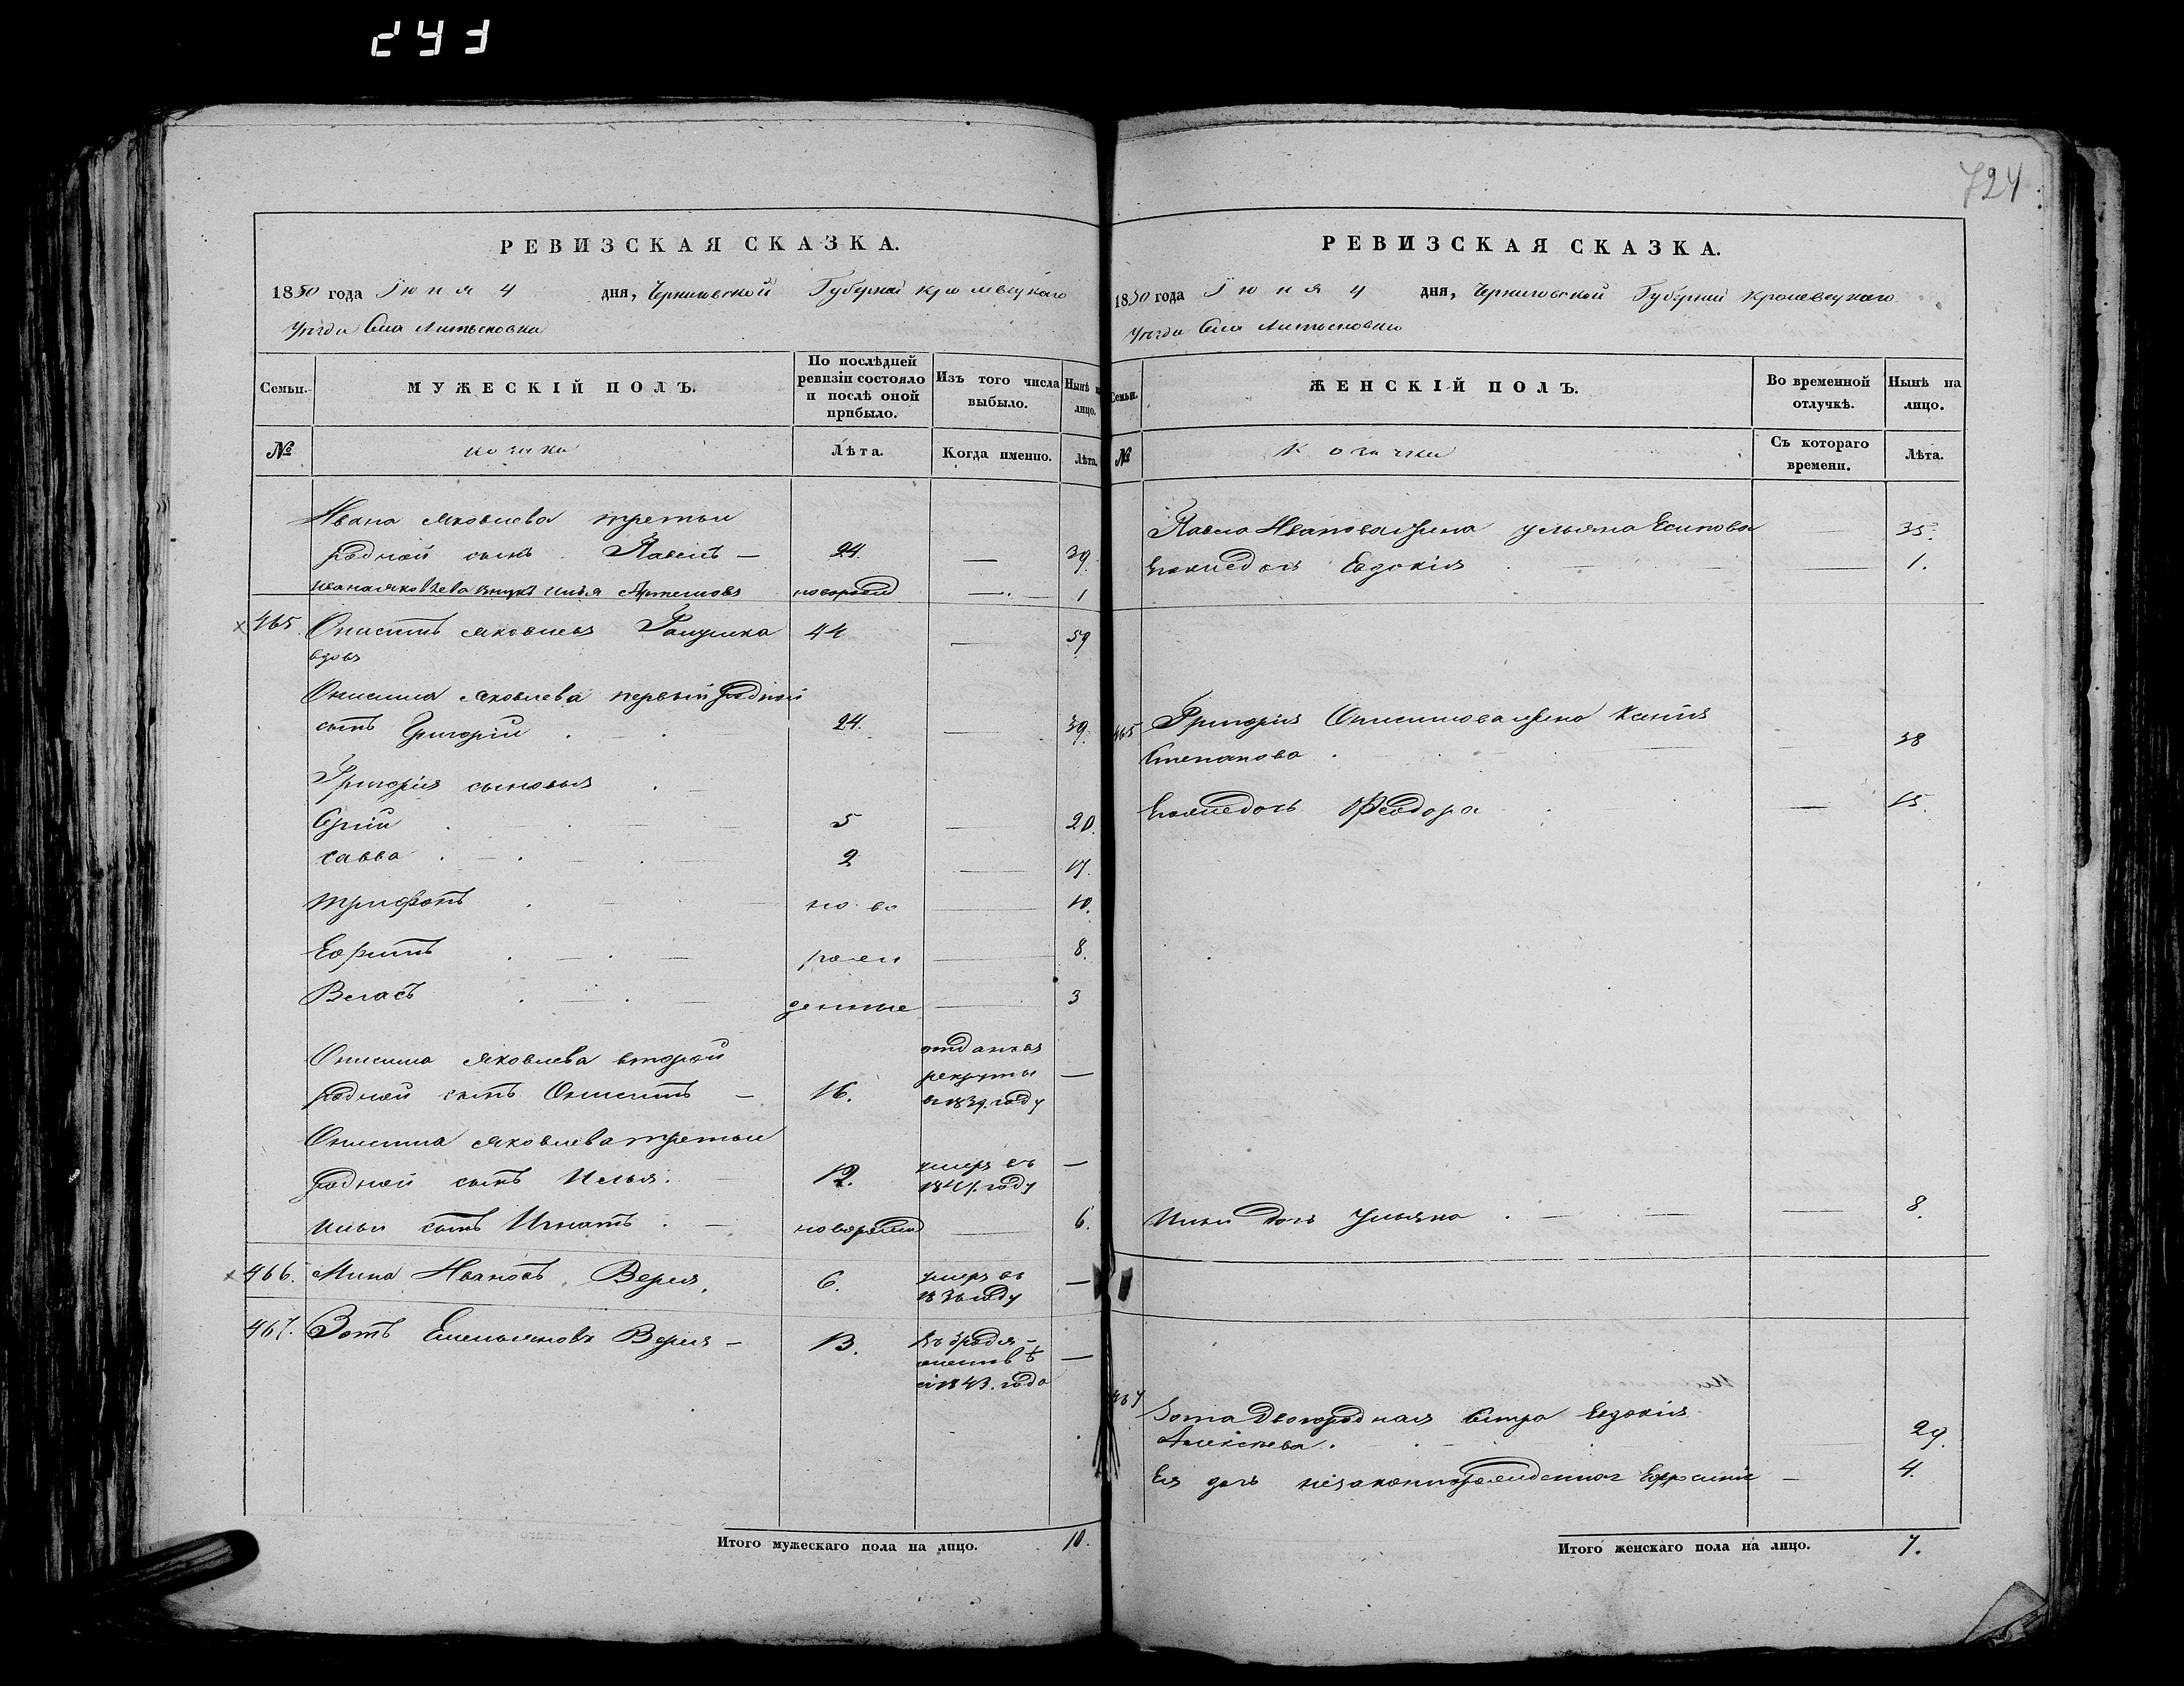 243
724
РЕВИЗСКАЯ СКАЗКА.
1850 года Іюня 4 дня, Черниговской Губерніи Кролевецкаго
уѣзда Села
Семьи. МУЖЕСКІЙ ПОЛЪ. По послѣдней ревизіи состояло и послѣ оной прибыло. Изъ того числа выбыло. Нынѣ на лицо.
№ козачки Лѣта. Когда именно. Лѣта.
Ивана Яковлева третьи
родной сынъ Павелъ — 24. — 39.
Ивана Яковлева внукъ Илья новорожд — 1
465. Онисимъ Яковлевъ 44 — 59
вдовъ
Онисима Яковлева первый родной
сынъ Григорій 24. — 39.
Григорія сыновья
Сергій 5 — 20.
Савва 2 — 17.
Трифонъ ново — 10.
Ефимъ рож — 8.
Власъ денные — 3
Онисима Яковлева второй отданъ въ
родной сынъ Онисимъ — 16. рекруты —
в 1839. году
Онисима Яковлева третьи
родной сынъ Илья. 12. умеръ въ —
1841. году
Ильи сынъ Игнатъ новорожд — 6.
466. Мина Ивановъ Верея. 6. умеръ въ —
1836 году
467. Зотъ Емельяновъ Верея — 13. въ бродя-
жествѣ —
съ 1843. года
Итого мужескаго пола на лицо. 10.
РЕВИЗСКАЯ СКАЗКА.
1850 года Іюня 4 дня, Черниговской Губерніи Кролевецкаго
уѣзда Села
Семьи. ЖЕНСКІЙ ПОЛЪ. Во временной отлучкѣ. Нынѣ на лицо.
№ Козачки Съ котораго времени. Лѣта.
Павла Иванова жена Ульяна Есипова — 35.
Его дочь Евдокія — 1.
465 Григорія Онисимова жена Ксенія
Степанова — 38
Его дочь Феодора — 15.
Ильи дочь Ульяна — 8.
467
Зота двоюродная сестра Евдокія
Алексѣева. 29.
Ея дочь незаконнорожденная Ефросинія — 4.
Итого женскаго пола на лицо. 7.